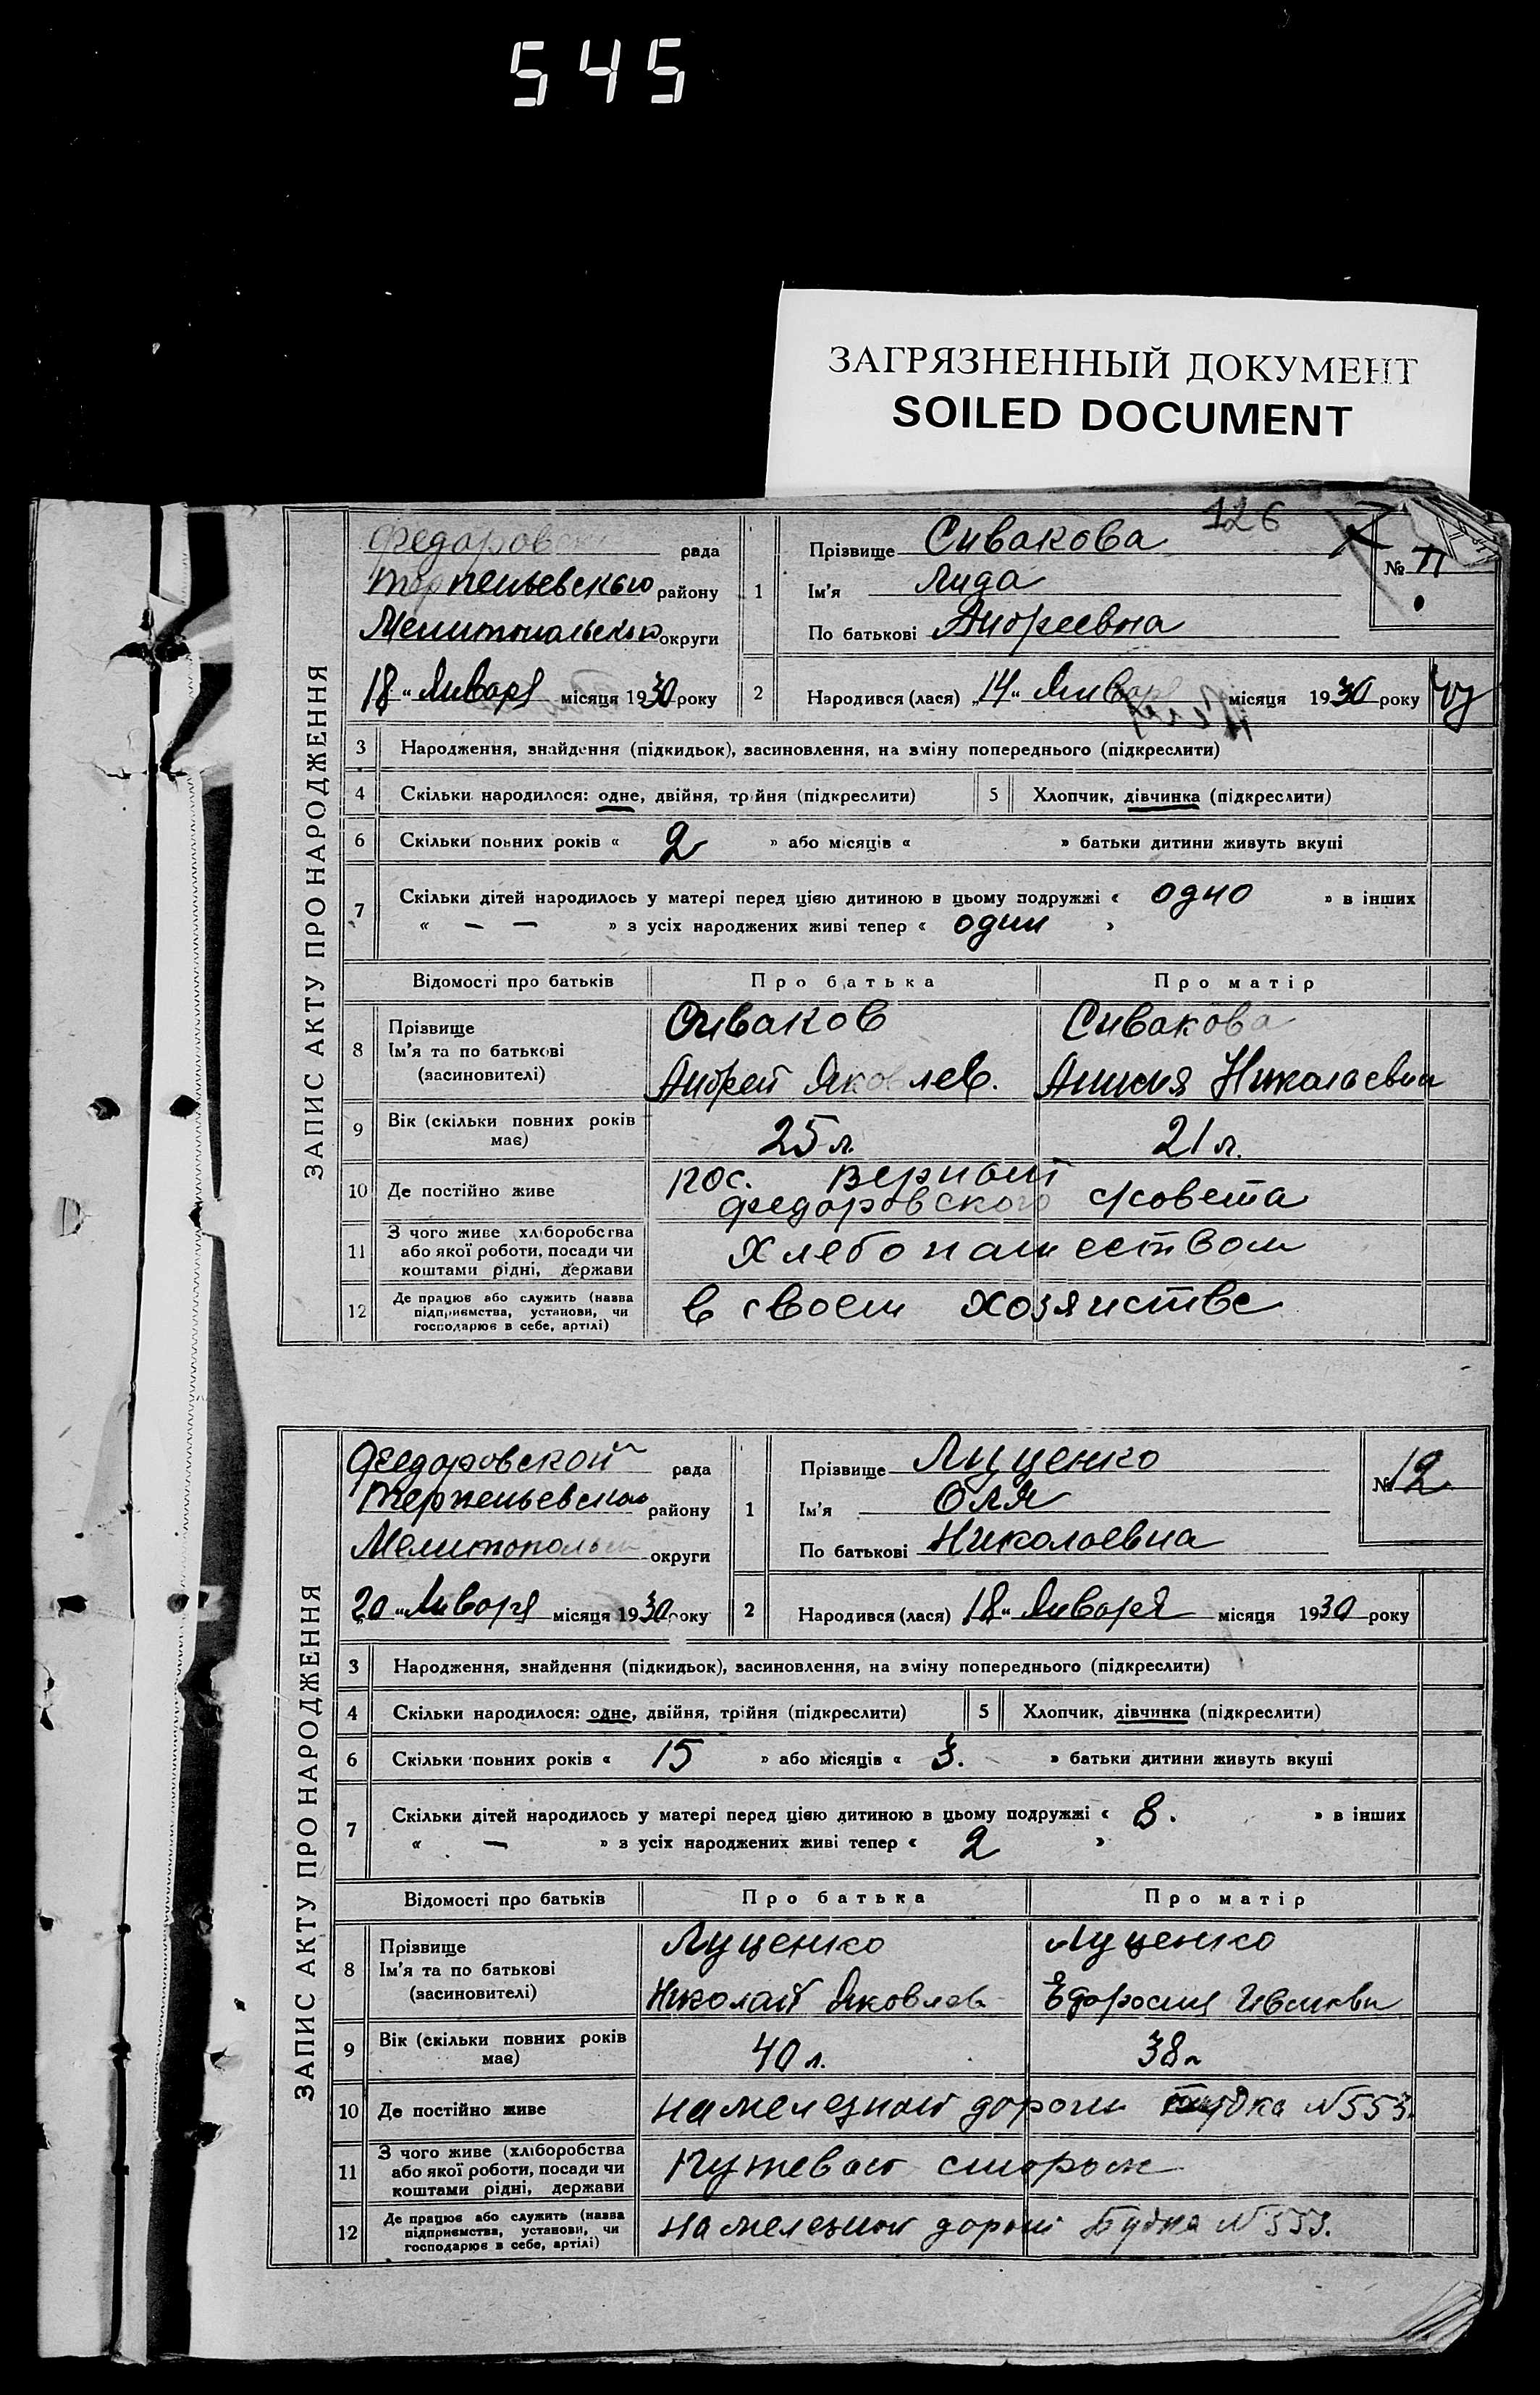 545
ЗАГРЯЗНЕННЫЙ ДОКУМЕНТ
SOILED DOCUMENT
126
ЗАПИС АКТУ ПРО НАРОДЖЕННЯ
Федоровск рада
Терпеньевского району
Мелитопольского округи
18 „ Января місяця 1930 року
1 Прізвище Сивакова
Ім'я Лида
По батькові Андреевна
№ 11
2 Народився (лася) „14 „ Января місяця 1930 року
3 Народження, знайдення (підкидьок), засиновлення, на зміну попереднього (підкреслити)
4 Скільки народилося: одне, двійня, трійня (підкреслити) 5 Хлопчик, дівчинка (підкреслити)
6 Скільки повних років « 2 » або місяців « » батьки дитини живуть вкупі
7 Скільки дітей народилось у матері перед цією дитиною в цьому подружжі « одно » в інших
« — — » з усіх народжених живі тепер « один »
Відомості про батьків Про батька Про матір
8 Прізвище
Ім'я та по батькові
(засиновителі)
Сиваков
Андрей Яковлев.
Сивакова
Николаевна
9 Вік (скільки повних років
має)
25 л. 21 л.
10 Де постійно живе
пос. Верный
Федоровского с/совета
11 З чого живе (хліборобства
або якої роботи, посади чи
коштами рідні, держави
Хлебопашеством
12 Де працює або служить (назва
підприємства, установи, чи
господарює в себе, артілі)
в своем хозяистве
ЗАПИС АКТУ ПРО НАРОДЖЕННЯ
Федоровской рада
Терпеньевского району
Мелитопольск округи
20 „ Января місяця 1930 року
1 Прізвище Луценко
Ім'я Оля
По батькові Николаевна
№ 12
2 Народився (лася) 18 „ Января місяця 1930 року
3 Народження, знайдення (підкидьок), засиновлення, на зміну попереднього (підкреслити)
4 Скільки народилося: одне, двійня, трійня (підкреслити) 5 Хлопчик, дівчинка (підкреслити)
6 Скільки повних років « 15 » або місяців « 3. » батьки дитини живуть вкупі
7 Скільки дітей народилось у матері перед цією дитиною в цьому подружжі « 8. » в інших
« — » з усіх народжених живі тепер « 2 »
Відомості про батьків Про батька Про матір
8 Прізвище
Ім'я та по батькові
(засиновителі)
Луценко
Николай Яковлев
Луценко
9 Вік (скільки повних років
має)
40 л. 38 л
10 Де постійно живе
на железной дороги будка №553.
11 З чого живе (хліборобства
або якої роботи, посади чи
коштами рідні, держави
Путевой сторож
12 Де працює або служить (назва
підприємства, установи, чи
господарює в себе, артілі)
на железной дороги Будка №553.